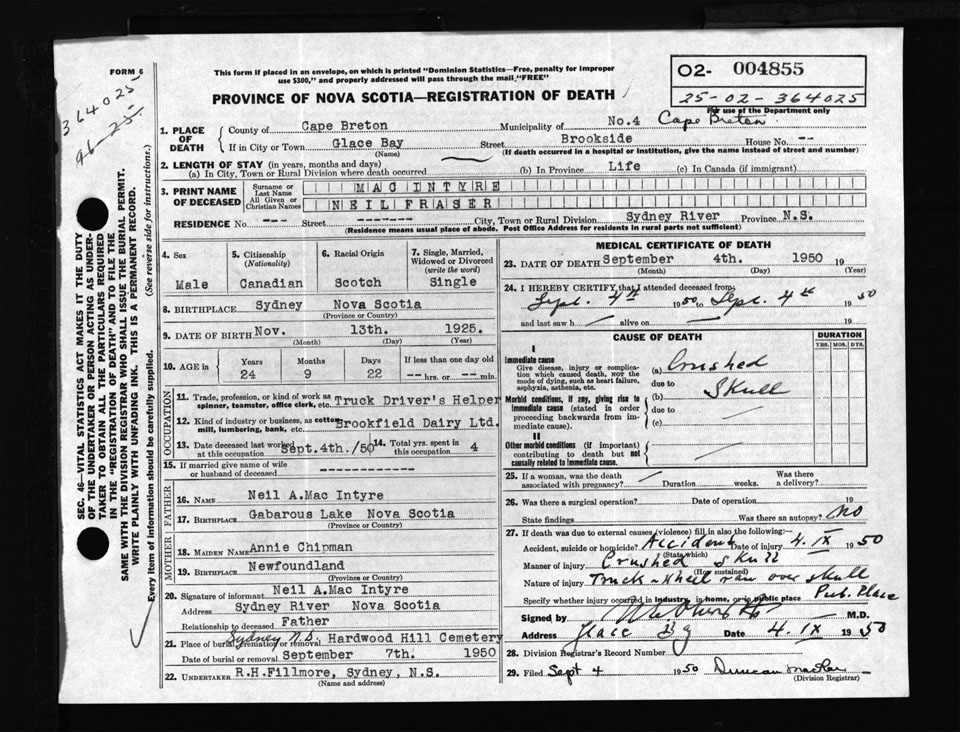 FORM 6
364025
This form if placed in an envelope, on which is printed "Dominion Statistics—Free, penalty for improper
use $300," and properly addressed will pass through the mail, "FREE"
PROVINCE OF NOVA SCOTIA—REGISTRATION OF DEATH
02- 004855
25-02-364025
For use of the Department only
1. PLACE OF DEATH
County of Cape Breton Municipality of No.4 Cape Breton
If in City or Town Glace Bay Street Brookside House No. --
(Name) (If death occurred in a hospital or institution, give the name instead of street and number)
2. LENGTH OF STAY (in years, months and days)
(a) In City, Town or Rural Division where death occurred (b) In Province Life (c) In Canada (if immigrant)
3. PRINT NAME OF DECEASED
Surname or Last Name MAC INTYRE
All Given or Christian Names NEIL FRASER
RESIDENCE No. --- Street ------- City, Town or Rural Division Sydney River Province N.S.
(Residence means usual place of abode. Post Office Address for residents in rural parts not sufficient)
4. Sex Male
5. Citizenship (Nationality) Canadian
6. Racial Origin Scotch
7. Single, Married, Widowed or Divorced (write the word) Single
8. BIRTHPLACE Sydney Nova Scotia
(Province or Country)
9. DATE OF BIRTH Nov. 13th. 1925.
(Month) (Day) (Year)
10. AGE in Years Months Days If less than one day old
24 9 22 --hrs. or --min.
OCCUPATION
11. Trade, profession, or kind of work as spinner, teamster, office clerk, etc. Truck Driver's Helper
12. Kind of industry or business, as cotton mill, lumbering, bank, etc. Brookfield Dairy Ltd.
13. Date deceased last worked at this occupation Sept.4th./50 14. Total yrs. spent in this occupation 4
15. If married give name of wife or husband of deceased ------------
FATHER
16. NAME Neil A.Mac Intyre
17. BIRTHPLACE Gabarous Lake Nova Scotia
(Province or Country)
MOTHER
18. MAIDEN NAME Annie Chipman
19. BIRTHPLACE Newfoundland
(Province or Country)
20. Signature of informant Neil A.Mac Intyre
Address Sydney River Nova Scotia
Relationship to deceased Father
21. Place of burial, cremation or removal Sydney N.S. Hardwood Hill Cemetery
Date of burial or removal September 7th. 1950
22. UNDERTAKER R.H.Fillmore, Sydney, N.S.
(Name and address)
MEDICAL CERTIFICATE OF DEATH
23. DATE OF DEATH September 4th. 1950 19
(Month) (Day) (Year)
24. I HEREBY CERTIFY that I attended deceased from
Sept. 4th 1950 to Sept. 4th 1950
and last saw h alive on 19
CAUSE OF DEATH
DURATION
YRS. MOS. DYS.
I
Immediate cause
Give disease, injury or complication which caused death, NOT the mode of dying, such as heart failure, asphyxia, asthenia, etc.
(a) Crushed
due to
(b) Skull
Morbid conditions, if any, giving rise to immediate cause (stated in order proceeding backwards from immediate cause).
due to
(c)
II
Other morbid conditions (if important) contributing to death but not causally related to immediate cause.
25. If a woman, was the death associated with pregnancy? Duration weeks. Was there a delivery?
26. Was there a surgical operation? Date of operation 19
State findings Was there an autopsy? No
27. If death was due to external causes (violence) fill in also the following:—
Accident, suicide or homicide? Accident Date of injury 4. IX 1950
(State which)
Manner of injury Crushed Skull
(How sustained)
Nature of injury Truck-wheel ran over skull
Specify whether injury occurred in industry, in home, or in public place Pub. Place
Signed by M.D.
Address Glace Bay Date 4. IX 1950
28. Division Registrar's Record Number
29. Filed Sept 4 1950 Duncan
(Division Registrar)
SEC. 46—VITAL STATISTICS ACT MAKES IT THE DUTY
OF THE UNDERTAKER OR PERSON ACTING AS UNDERTAKER
TO OBTAIN ALL THE PARTICULARS REQUIRED
IN THE "REGISTRATION OF DEATH" AND TO FILE THE
SAME WITH THE DIVISION REGISTRAR WHO SHALL ISSUE THE BURIAL PERMIT.
WRITE PLAINLY WITH UNFADING INK. THIS IS A PERMANENT RECORD.
Every item of information should be carefully supplied. (See reverse side for instructions.)